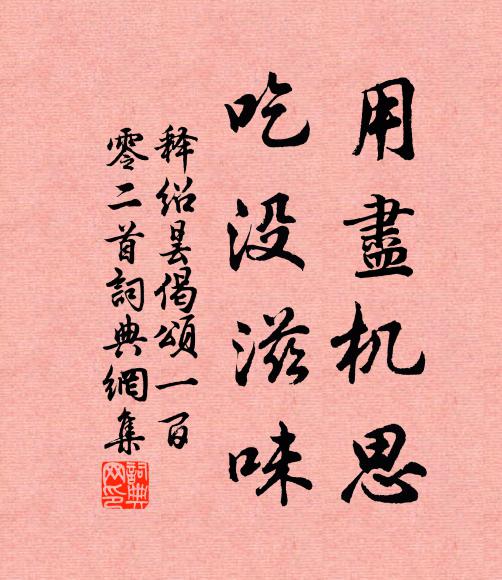 用盡机思
吃没滋味
释绍昙偈頌一百
零二首詞典網集
詞典网印